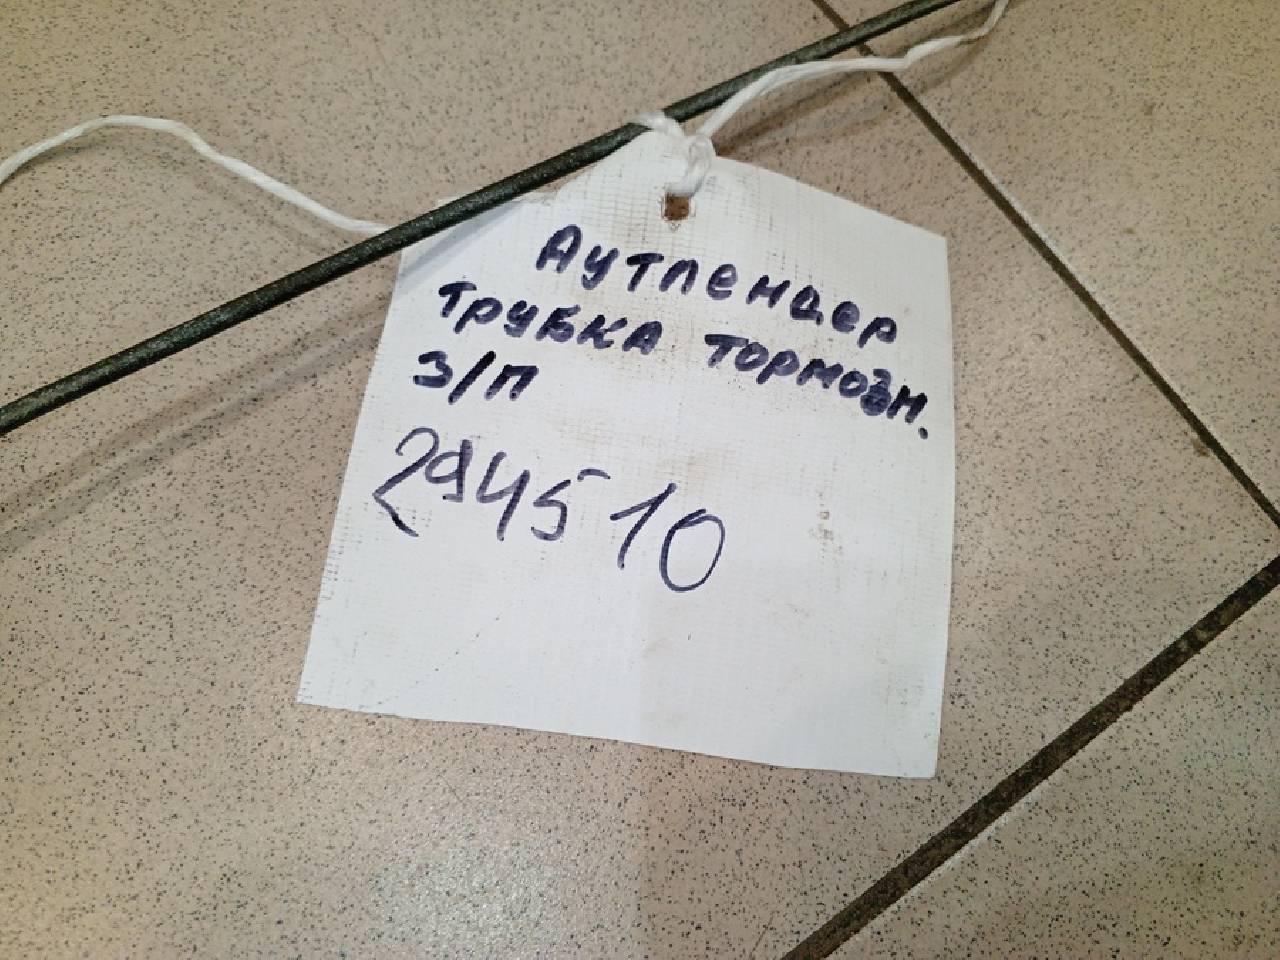 Аутлендер
трубка тормозн.
З/П
294510